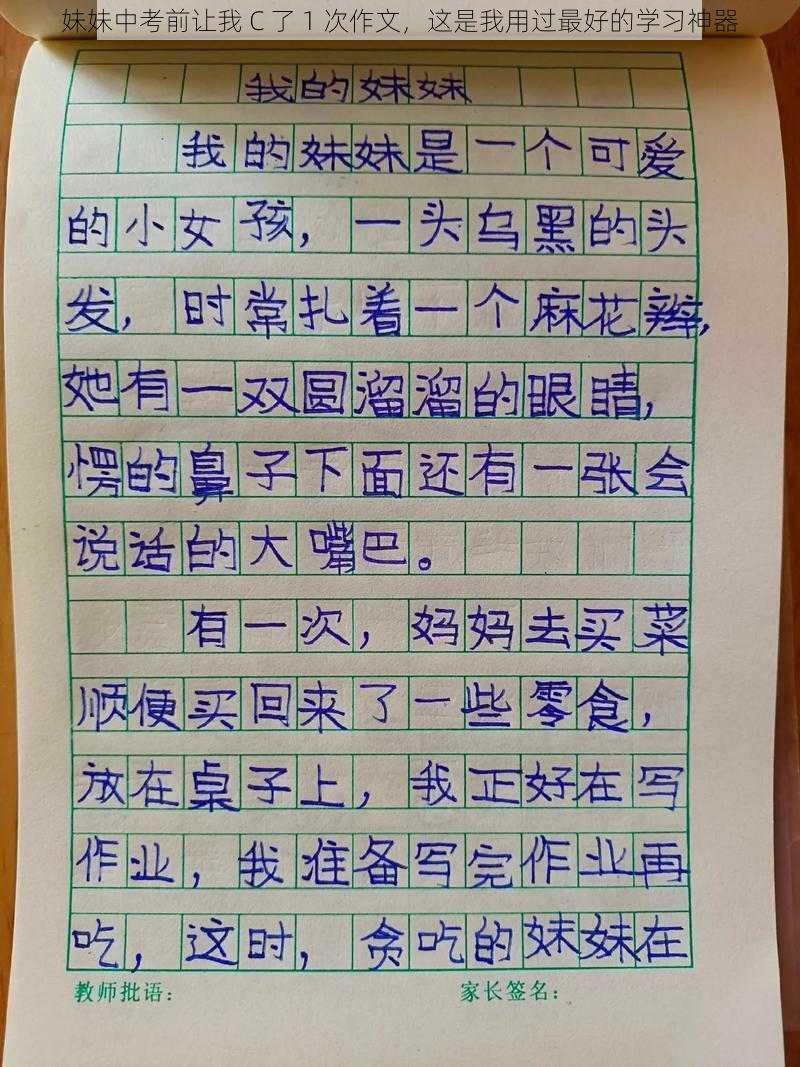 妹妹中考前让我 C 了 1 次作文，这是我用过最好的学习神器
我的妹妹
我的妹妹是一个可爱
的小女孩，一头乌黑的头
发，时常扎着一个麻花辫，
她有一双圆溜溜的眼睛，
愣的鼻子下面还有一张会
说话的大嘴巴。
有一次，妈妈去买菜
顺便买回来了一些零食，
放在桌子上，我正好在写
作业，我准备写完作业再
吃，这时，贪吃的妹妹在
教师批语：
家长签名：